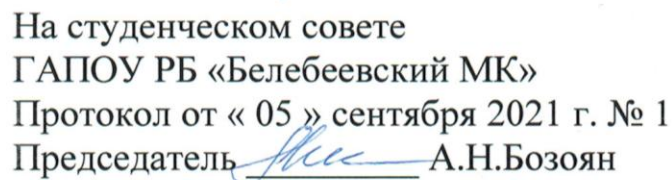 На студенческом совете
ГАПОУ РБ «Белебеевский МК»
Протокол от « 05 » сентября 2021 г. № 1
Председатель ____________ А.Н.Бозоян